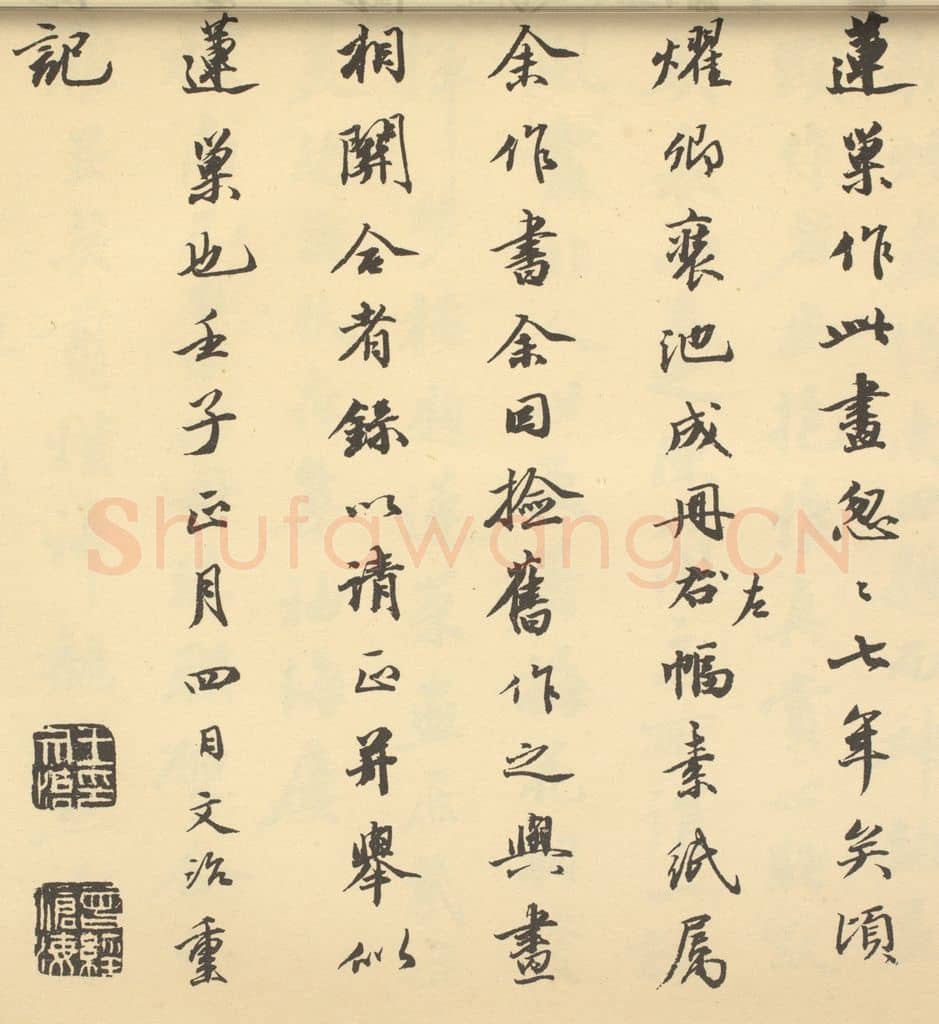 蓮巢作此畫忽〻七年矣頃
燿卿裝池成冊右左幅素紙属
余作書余因撿舊作之與畫
相關合者錄以請正并舉似
蓮巢也壬子正月四日文治重
記
王文治
曾經滄海
Shufawang.CN